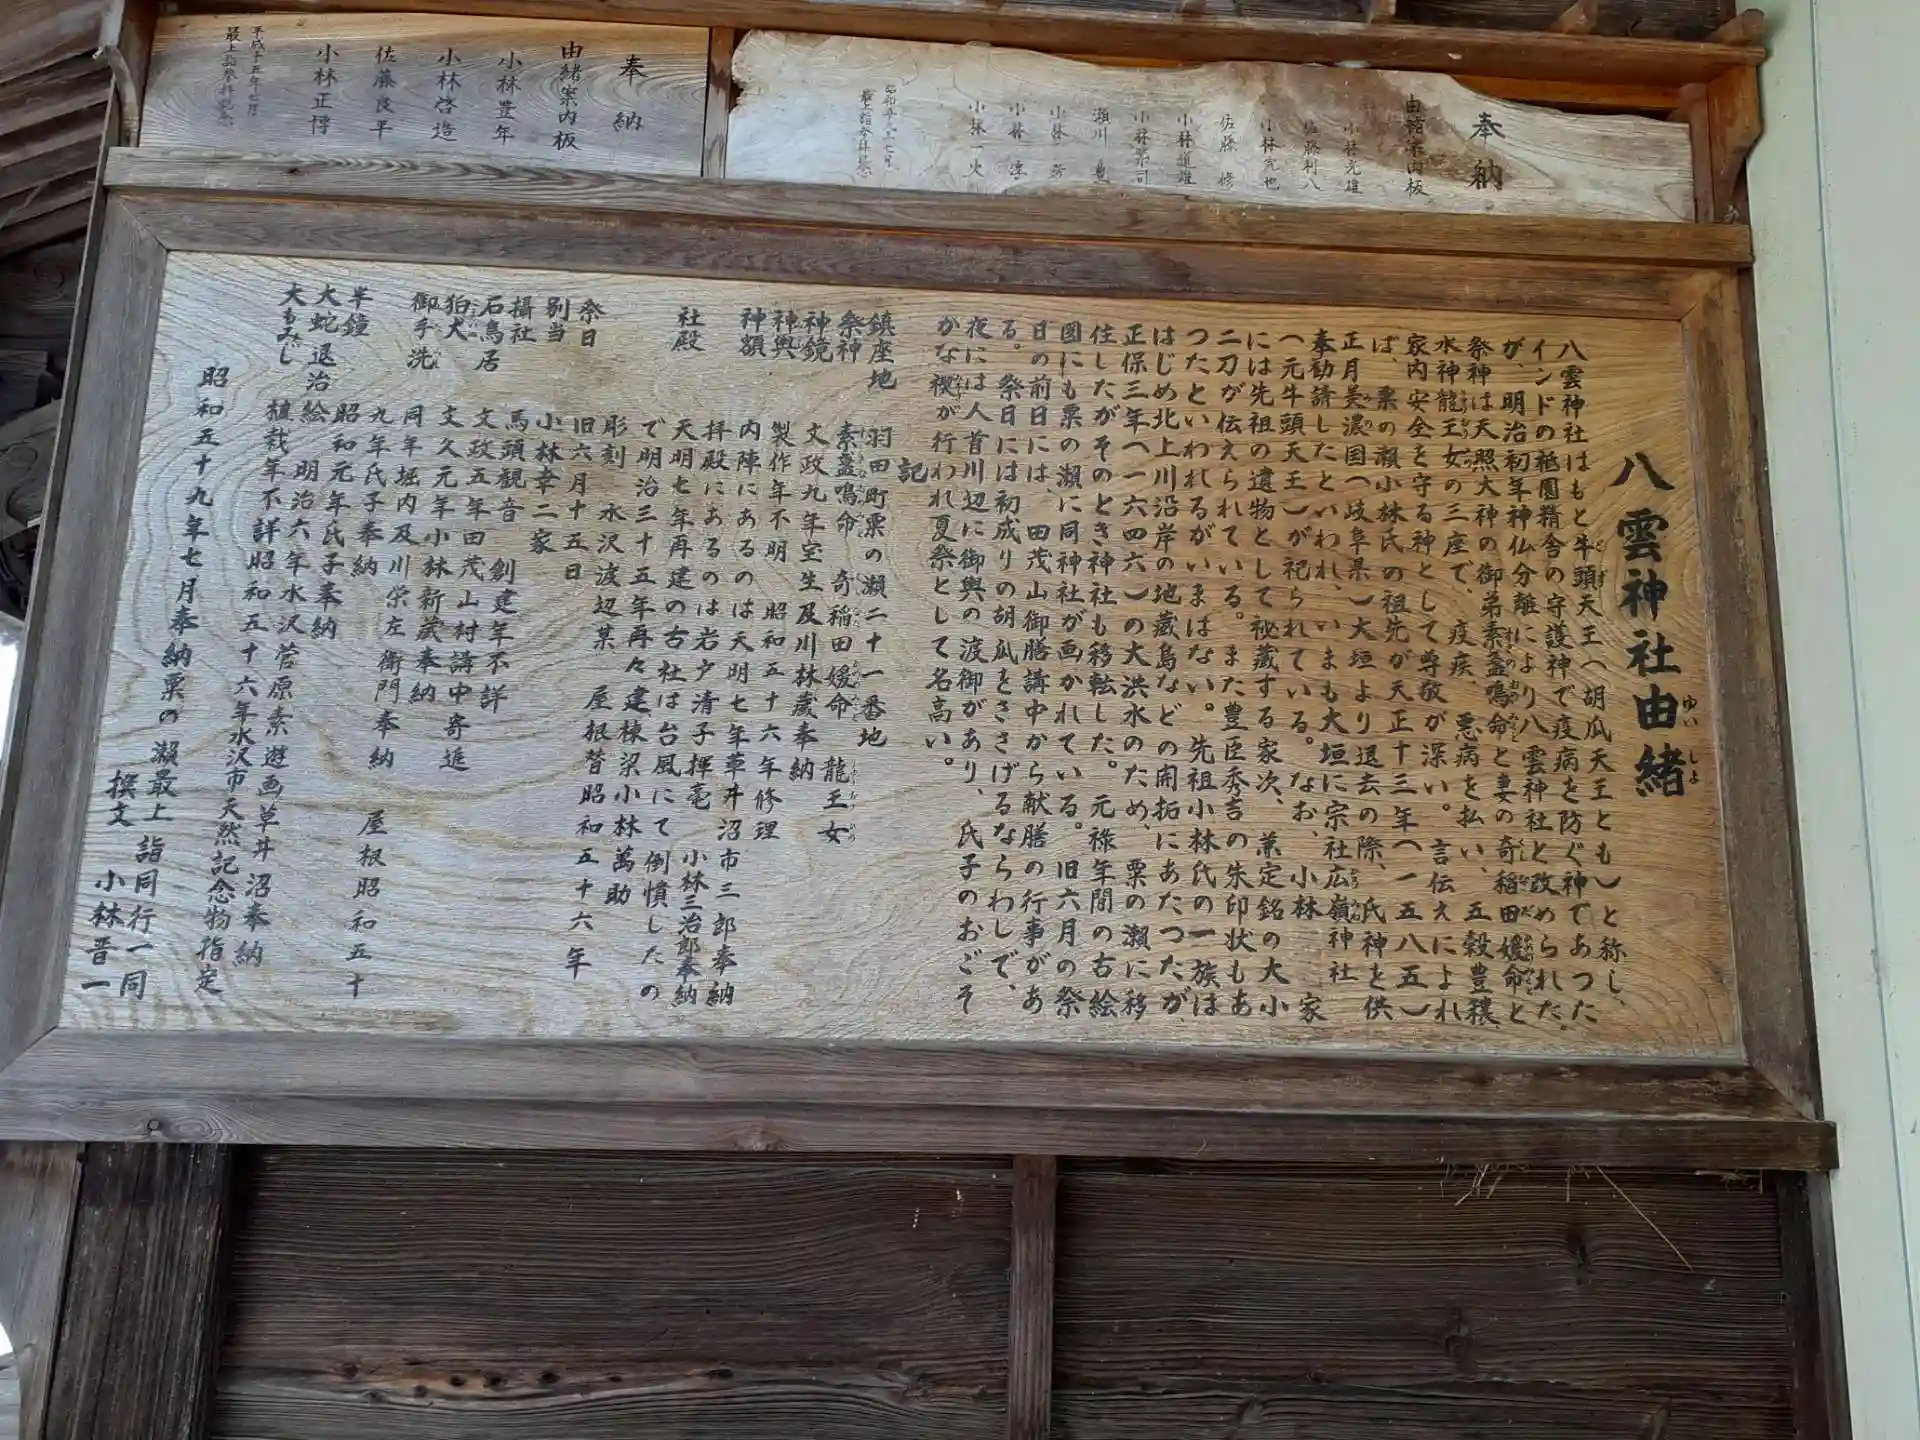 奉納
由緒案内板
小林克雄
佐藤利八
小林克也
佐藤 修
小林道雄
小林栄司
瀬川 豊
小林 芳
小林 淳
小林一火
奉納
由緒案内板
小林豊年
小林啓造
佐藤良平
小林正博
平成十五年七月
最上詣参拝記念
八雲神社由緒
ゆいしよ
八雲神社はもと牛頭天王（胡瓜天王とも）と称し、
インドの祗園精舎の守護神で疫病を防ぐ神であつた
が、明治初年神仏分離により八雲神社と改められた。
祭神は天照大神の御弟素盞鳴命と妻の奇稲田媛命と
水神龍王女の三座で、疫疾、悪病を払い、五穀豊穣
家内安全を守る神として尊敬が深い。言伝えによれ
ば、栗の瀬小林氏の祖先が天正十三年（一五八五）
正月美濃国（岐阜県）大垣より退去の際、氏神を供
奉勧請したといわれ、いまも大垣に宗社広嶺神社
（元牛頭天王）が祀られている。なお、小林 家
には先祖の遺物として秘蔵する家次、兼定銘の大小
二刀が伝えられている。また豊臣秀吉の朱印状もあ
つたといわれるがいまはない。先祖小林氏の一族は
はじめ北上川沿岸の地蔵島などの開拓にあたつたが、
正保三年（一六四六）の大洪水のため、栗の瀬に移
住したがそのとき神社も移転した。元禄年間の古絵
図にも栗の瀬に同神社が画かれている。旧六月の祭
日の前日には、田茂山御膳講中から献膳の行事があ
る。祭日には初成りの胡瓜をささげるならわしで、
夜には人首川辺に御輿の渡御があり、氏子のおごそ
かな禊が行われ夏祭として名高い。
記
鎮座地 羽田町栗の瀬二十一番地
祭神 素盞鳴命 奇稲田媛命 龍王女
神鏡 文政九年室生及川林蔵奉納
神輿 製作年不明 昭和五十六年修理
神額 内陣にあるのは天明七年草井沼市三郎奉納
拝殿にあるのは岩戸清子揮毫 小林三治郎奉納
社殿 天明七年再建の古社は台風にて倒憤したの
で明治三十五年再々建棟梁小林萬助
彫刻 水沢渡辺某 屋根替昭和五十六年
祭日 旧六月十五日
別当 小林幸二家
摂社 馬頭観音 創建年不詳
石鳥居 文政五年田茂山村講中寄進
狛犬 文久元年小林新蔵奉納
御手洗 同年堀内及川栄左衛門奉納 屋根昭和五十
九年氏子奉納
半鐘 昭和元年氏子奉納
大蛇退治絵 明治六年水沢菅原素遊画草井沼奉納
大もみじ 植栽年不詳昭和五十六年水沢市天然記念物指定
昭和五十九年七月奉納栗の瀬最上詣同行一同
撰文 小林晋一